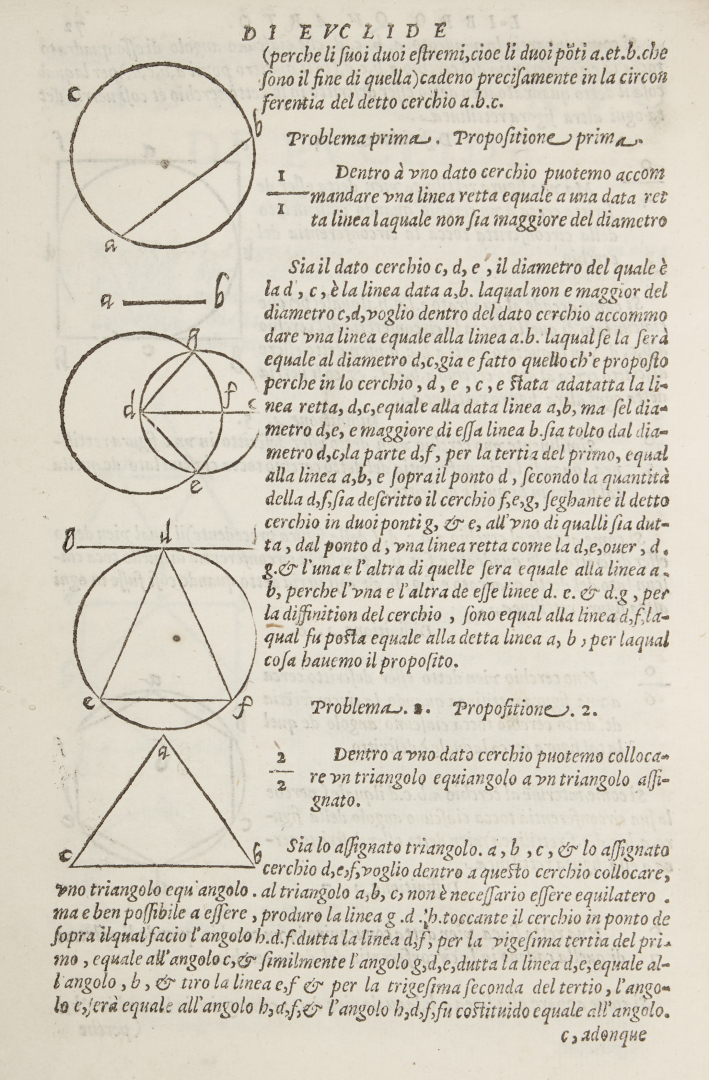 DI EVCLIDE
(perche li ſuoi duoi eſtremi,cioe li duoi põti a.et.b.che
ſono il fine di quella)cadeno preciſamente in la circon
ferentia del detto cerchio a.b.c.
Problema prima. Propoſitione prima.
1
1
Dentro à vno dato cerchio puotemo accom
mandare vna linea retta equale a una data ret
ta linea laquale non ſia maggiore del diametro
c
b
a
a b
Sia il dato cerchio c, d, e, il diametro del quale è
la d, c, è la linea data a,b. laqual non e maggior del
diametro c,d,voglio dentro del dato cerchio accommo
dare vna linea equale alla linea a.b. laqual ſe la ſerà
equale al diametro d,c,gia e fatto quello ch'e propoſto
perche in lo cerchio, d, e, c, e ſtata adatatta la li-
nea retta, d,c,equale alla data linea a,b, ma ſel dia-
metro d,e, e maggiore di eſſa linea b.ſia tolto dal dia-
metro d,c,la parte d,f, per la tertia del primo, equal
alla linea a,b, e ſopra il ponto d, ſecondo la quantità
della d,f,ſia deſcritto il cerchio f,e,g, ſeghante il detto
cerchio in duoi ponti g, & e, all'vno di qualli ſia dut-
ta, dal ponto d, vna linea retta come la d,e,ouer, d.
g.& l'una e l'altra di quelle ſera equale alla linea a.
b, perche l'vna e l'altra de eſſe linee d. e. & d.g, per
la diffinition del cerchio, ſono equal alla linea d,f,la-
qual fu poſta equale alla detta linea a, b, per laqual
coſa hauemo il propoſito.
g
d f c
e
g d
e f
Problema. 2. Propoſitione. 2.
2
2
Dentro a vno dato cerchio puotemo colloca-
re vn triangolo equiangolo a vn triangolo aſſi-
gnato.
a
c b
Sia lo aſſignato triangolo. a, b, c, & lo aſſignato
cerchio d,e,f,voglio dentro a queſto cerchio collocare,
vno triangolo equiangolo. al triangolo a,b, c, non è neceſſario eſſere equilatero.
ma e ben poſſibile a eſſere, produro la linea g .d .h.toccante il cerchio in ponto de
ſopra ilqual facio l'angolo h.d.f.dutta la linea d,f, per la vigeſima tertia del pri-
mo, equale all'angolo c,& ſimilmente l'angolo g,d,e,dutta la linea d,e,equale al-
l'angolo, b, & tiro la linea e,f & per la trigeſima ſeconda del tertio, l'ango-
lo e,ſerà equale all'angolo h,d,f,& l'angolo h,d,f,fu coſtituido equale all'angolo.
c, adonque